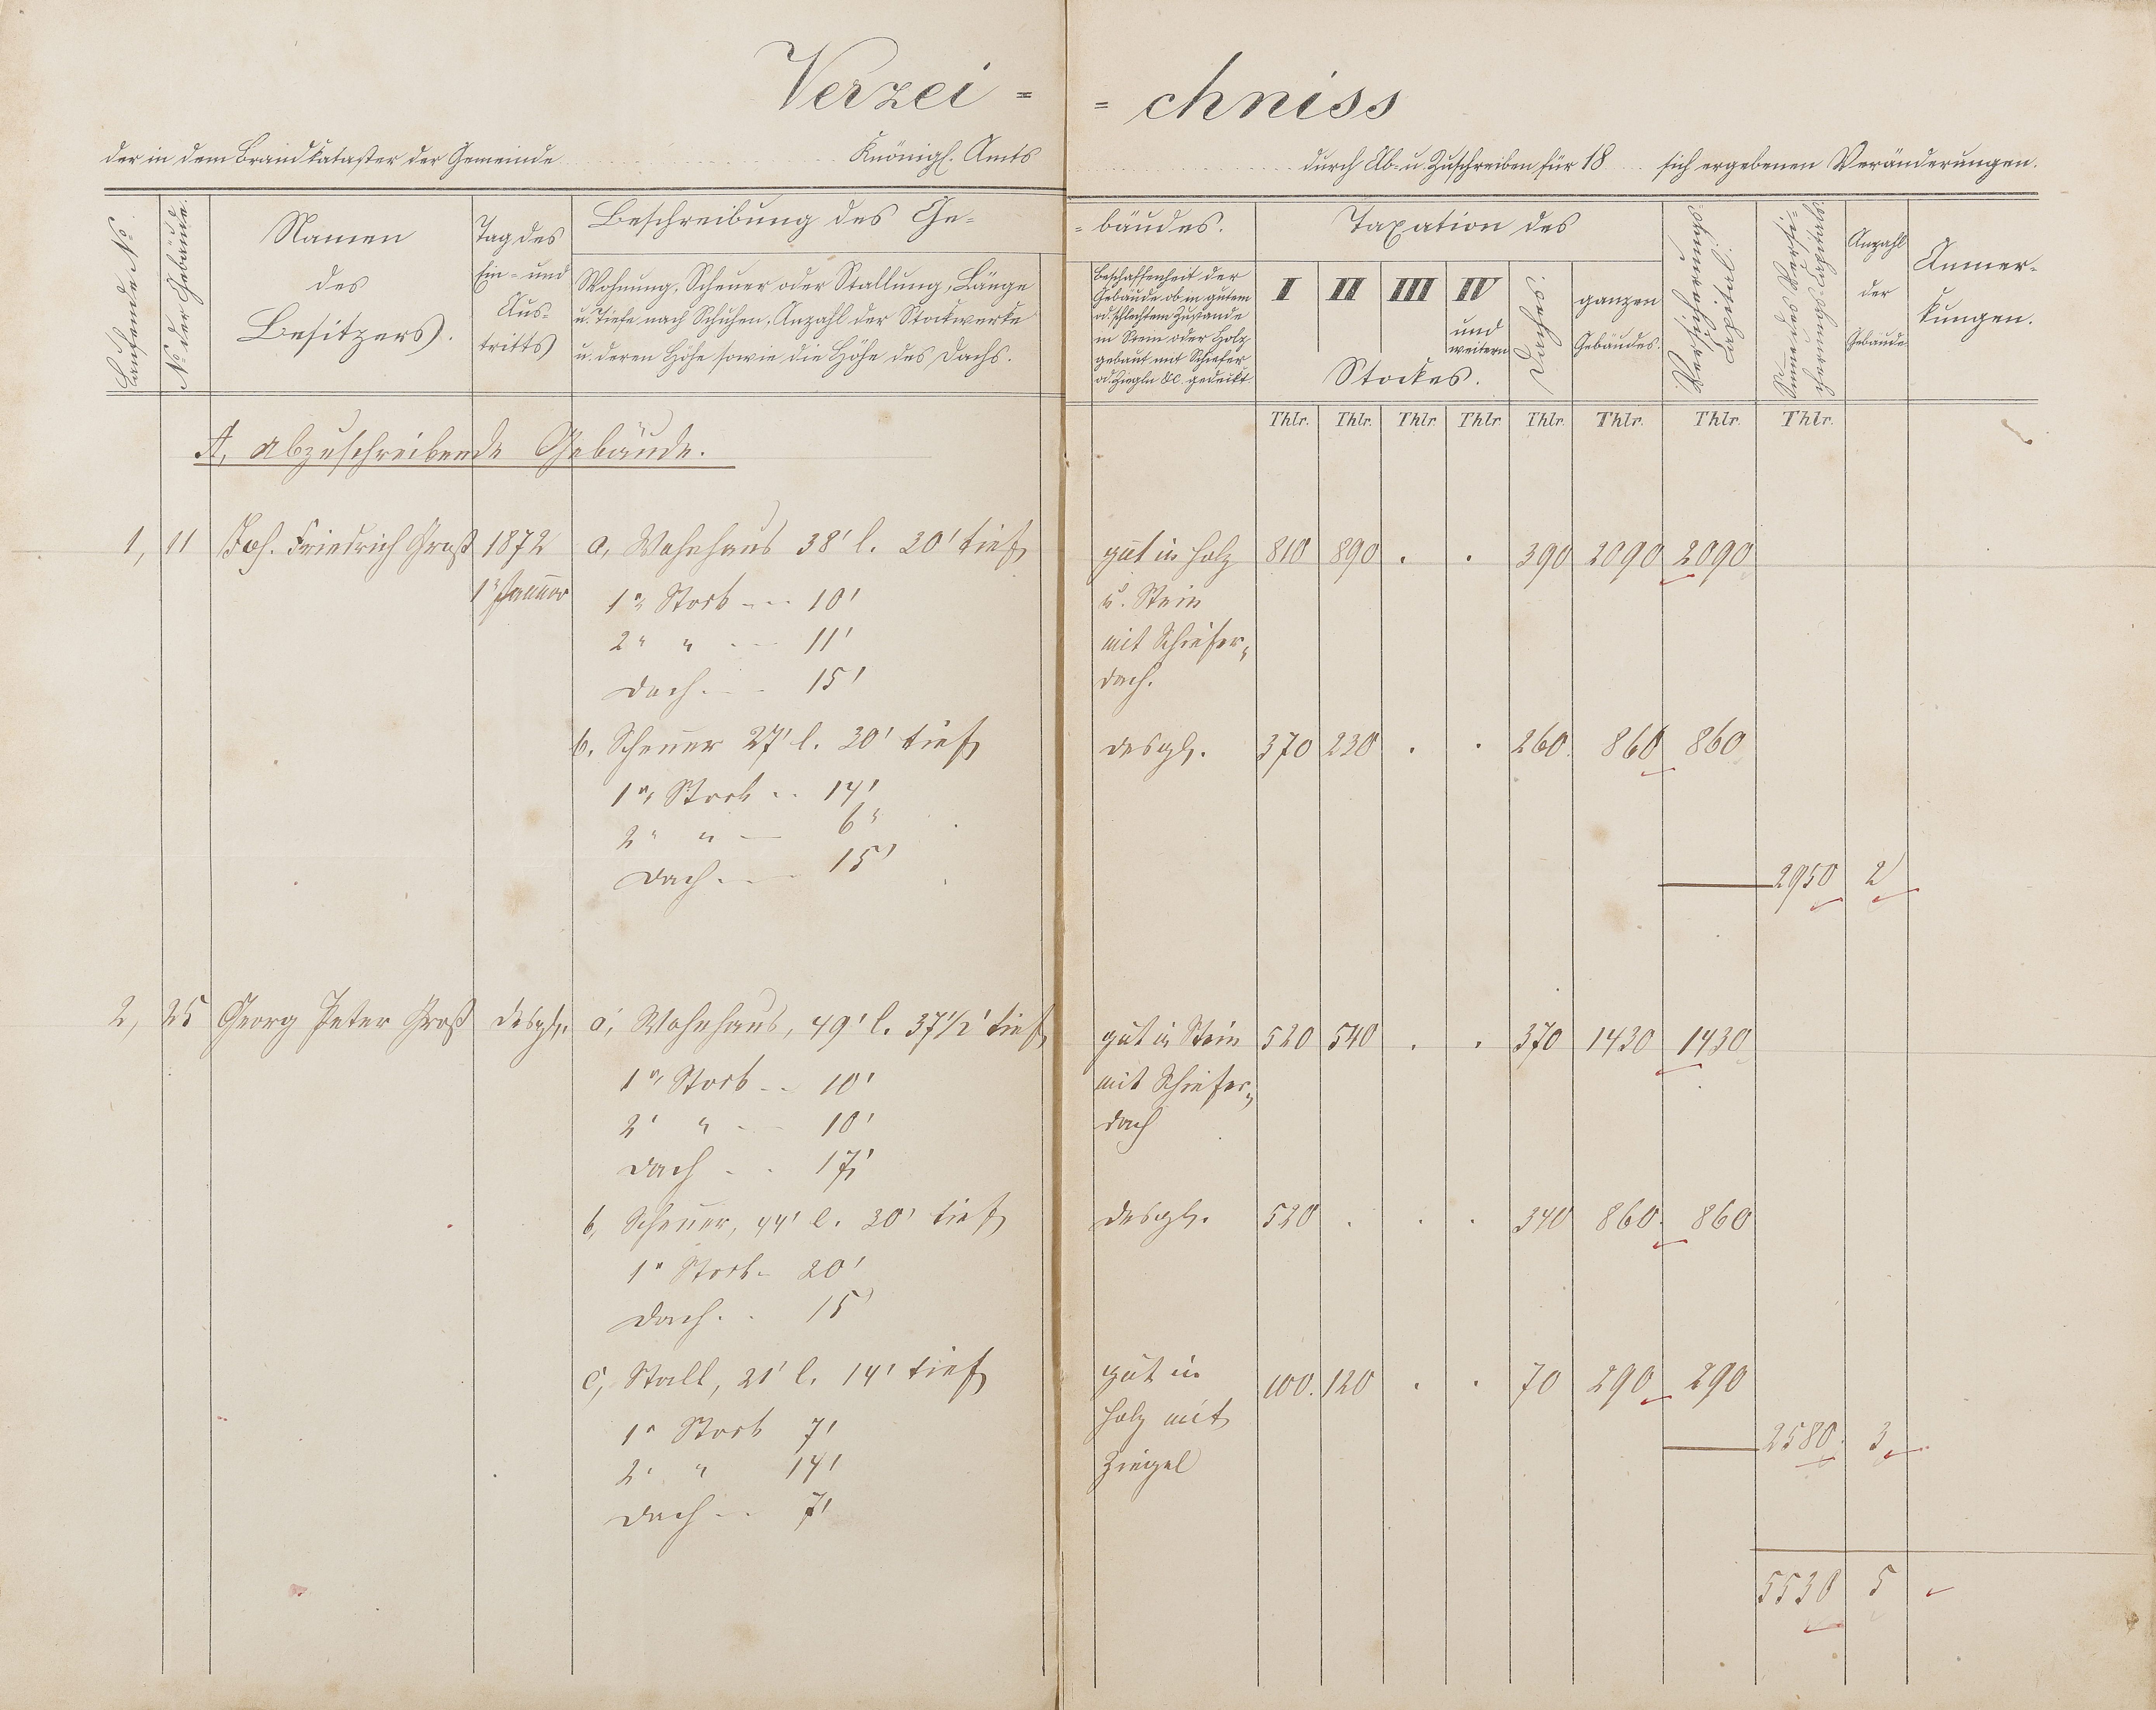 Verzei = = chniss
der in dem Brandkataster der Gemeinde Königl. Amts durch Ab- u. Zuschreiben für 18 sich ergebenen Veränderungen.
Laufende No.
No. der Gebäude.
Namen
des
Besitzers.
Tag des
Ein- und
Aus-
tritts
Beschreibung des Ge-
Wohnung, Scheuer oder Stallung, Länge
u. Tiefe nach Schuhen, Anzahl der Stockwerke
u. deren Höhe sowie die Höhe des Dachs.
- bäudes.
Beschaffenheit der
Gebäude ob in gutem
od. schlechtem Zustande
in Stein oder Holz
gebaut mit Schiefer
od. Ziegln &c. gedeckt.
Taxation des
I II III IV
und
weitern
Stockes.
Daches.
ganzen
Gebäudes.
Versicherungs-
capital.
Summe des Versi-
cherungs-Capitals.
Anzahl
der
Gebäude
Anmer-
kungen.
Thlr. Thlr. Thlr. Thlr. Thlr. Thlr. Thlr. Thlr.
A, abzuschreibende Gebäude.
1, 11 Joh. Friedrich Groß 1872 a, Wohnhaus 38' l. 20' tief gut in Holz 810 890 . . 390 2090 2090
1" Januar 1" Stock --- 10' u. Stein
2" " --- 11' mit Schiefer-
Dach --- 15' dach.
b. Scheuer 27' l. 30' tief desgl. 370 230 . . 260 860 860
1" Stock .. 14'
2" " — 6"
Dach --- 15'
2950 2
2, 25 Georg Peter Groß desgl. a, Wohnhaus, 49' l. 37 1/2' tief gut in Stein 520 540 . . 370 1430 1430
1" Stock -- 10' mit Schiefer-
2' " — 10' dach
Dach - - 17'
b, Scheuer, 44' l. 30' tief desgl. 520 . . . 340 860 860
1" Stock - 20'
Dach . . 15'
c, Stall, 21' l. 14' tief gut in 100. 120 . . 70 290 290
1" Stock 7' Holz mit
2' " 14' Ziegel 2580 3
Dach -- 7'
5530 5